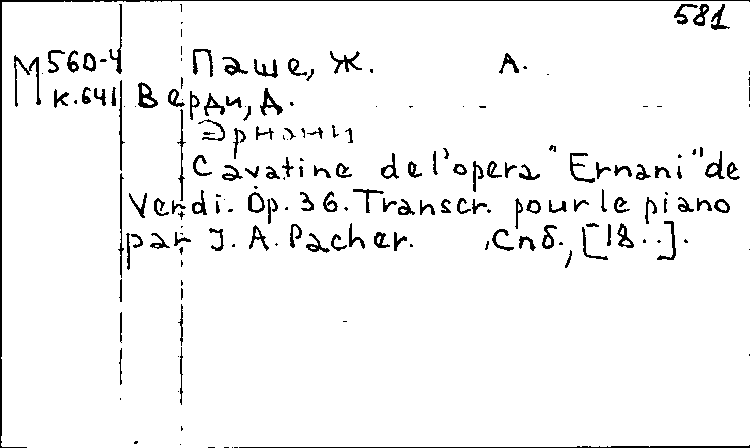 581
М 560-4 Паше, Ж. А.
к.641 Верди, Д.
Эрнани
Cavatine de l'opera "Ernani" de
Verdi. Op. 36. Transcr. pour le piano
par J. A. Pacher. Спб., [18..].